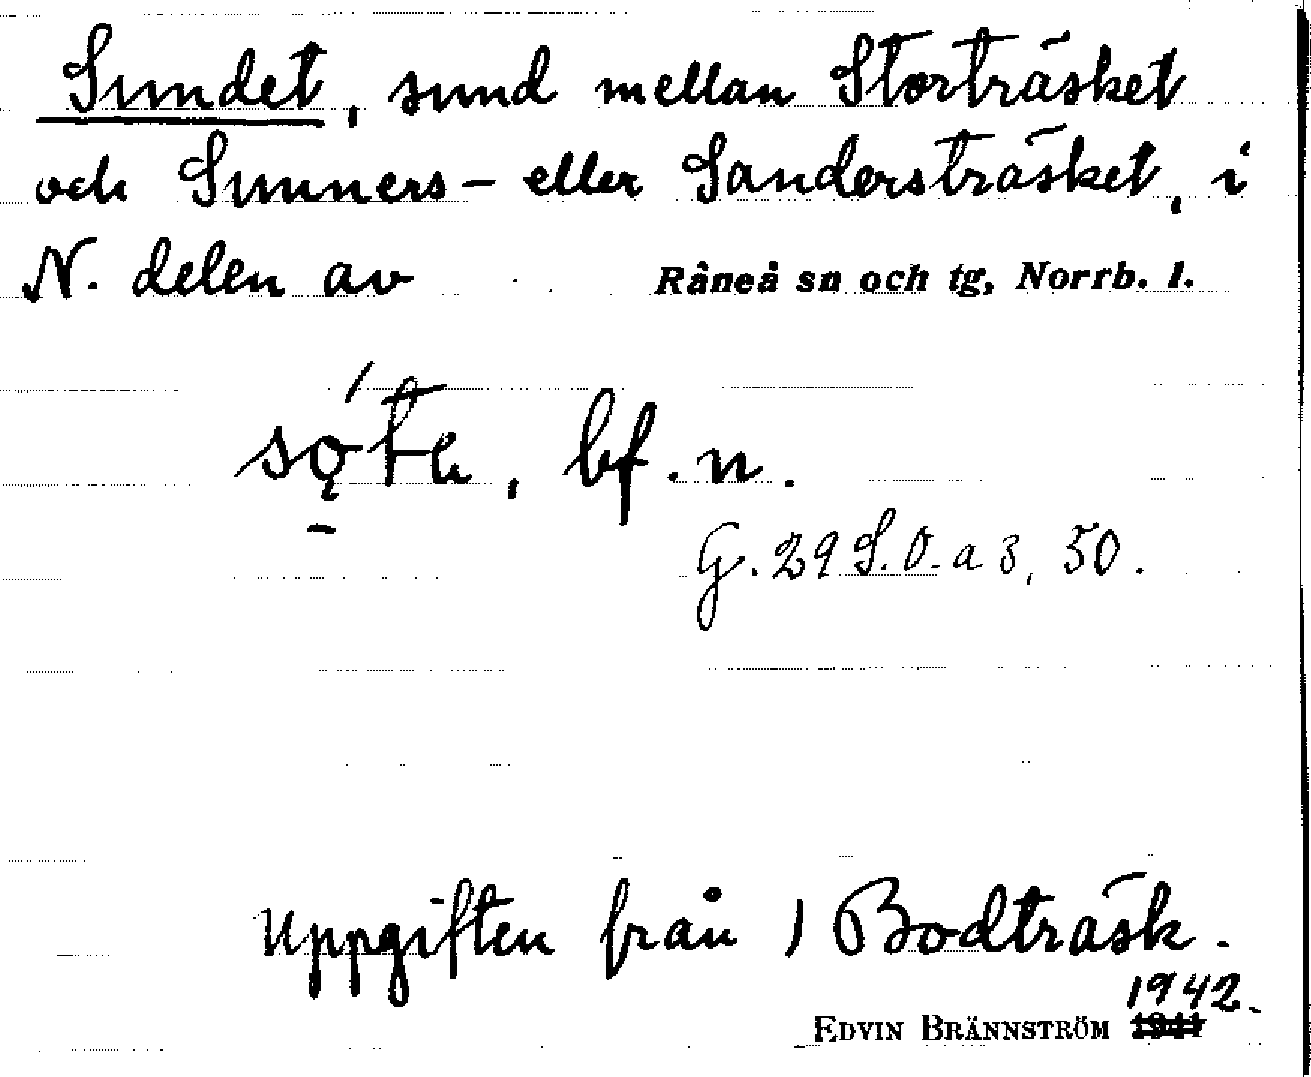 Sundet, sund mellan Storträsket
och Sunners- eller Sandersträsket, i
N. delen av Råneå sn och tg, Norrb. l.
bf. n.
G. 29 S. O. a 3, 50.
Uppgiften från 1 Bodträsk.
1942.
EDVIN BRÄNNSTRÖM 1941